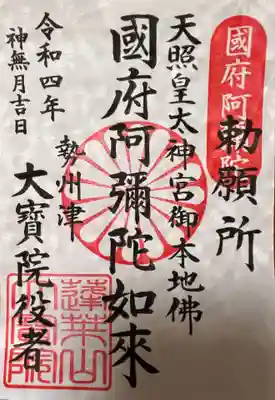 國府阿
勅願所
天照皇太神宮御本地佛
國府阿彌陀如來
勢州津
大寶院役者
令和四年
神無月吉日
蓮華山